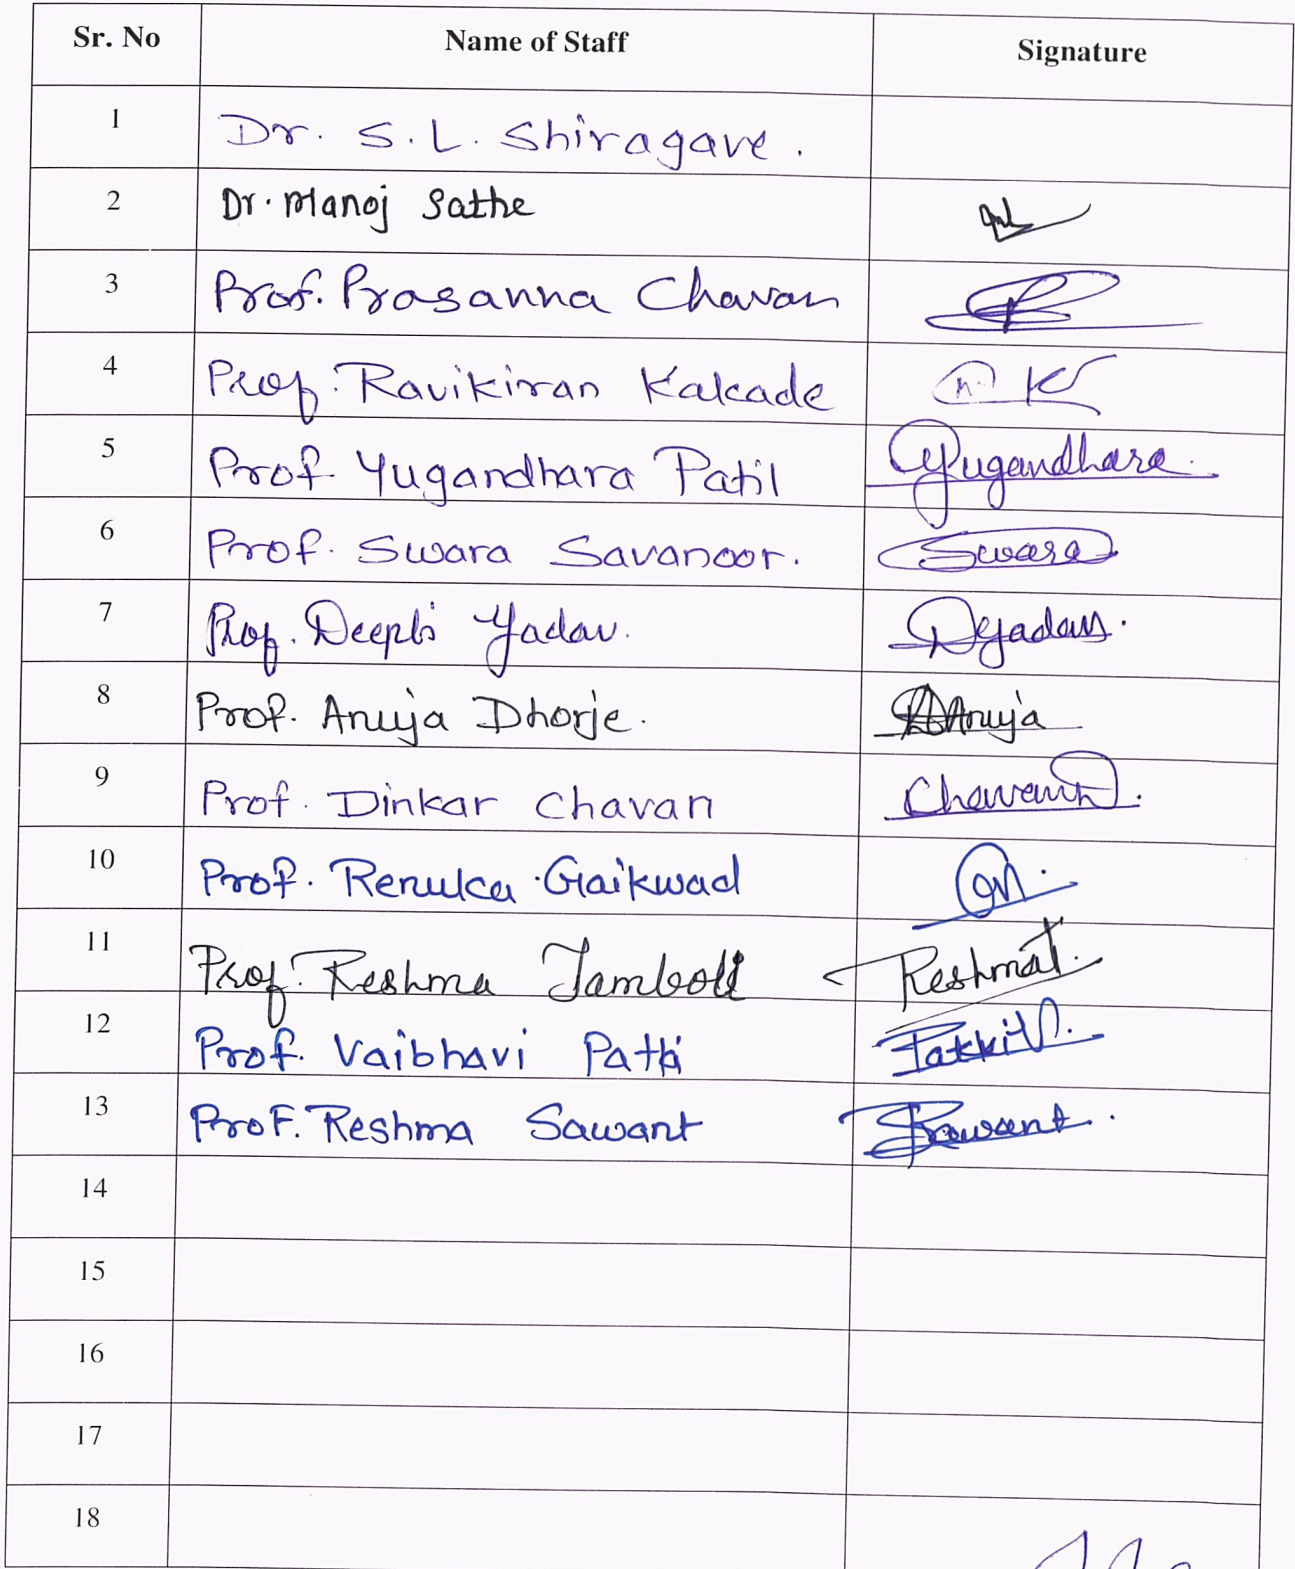 Sr. No Name of Staff Signature
1 Dr. S. L. Shiragave.
2 Dr. Manoj Sathe
3 Prof. Prasanna Chavan
4 Prof. Ravikiran Kakade K
5 Prof Yugandhara Patil Yugandhara
6 Prof. Swara Savanoor. Swara
7 Prof. Deepti Yadav. DYadav.
8 Prof. Anuja Dhorje. Anuja
9 Prof. Dinkar Chavan Chavan D.
10 Prof. Renuka Gaikwad
11 Prof. Reshma Tamboli Reshma T.
12 Prof. Vaibhavi Patki Patki V.
13 Prof. Reshma Sawant Sawant.
14
15
16
17
18